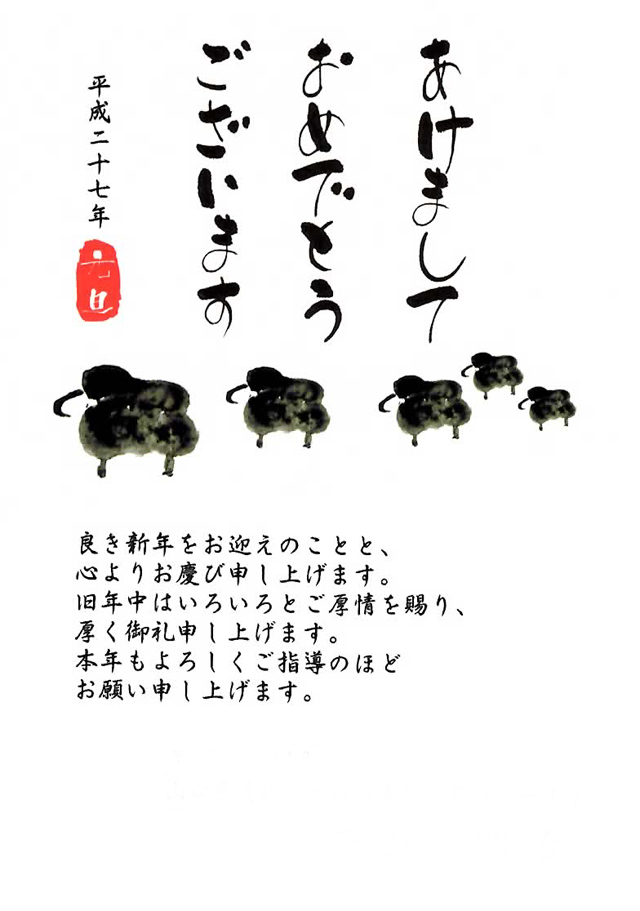 あけまして
おめでとう
ございます
平成二十七年
元旦
良き新年をお迎えのことと、
心よりお慶び申し上げます。
旧年中はいろいろとご厚情を賜り、
厚く御礼申し上げます。
本年もよろしくご指導のほど
お願い申し上げます。